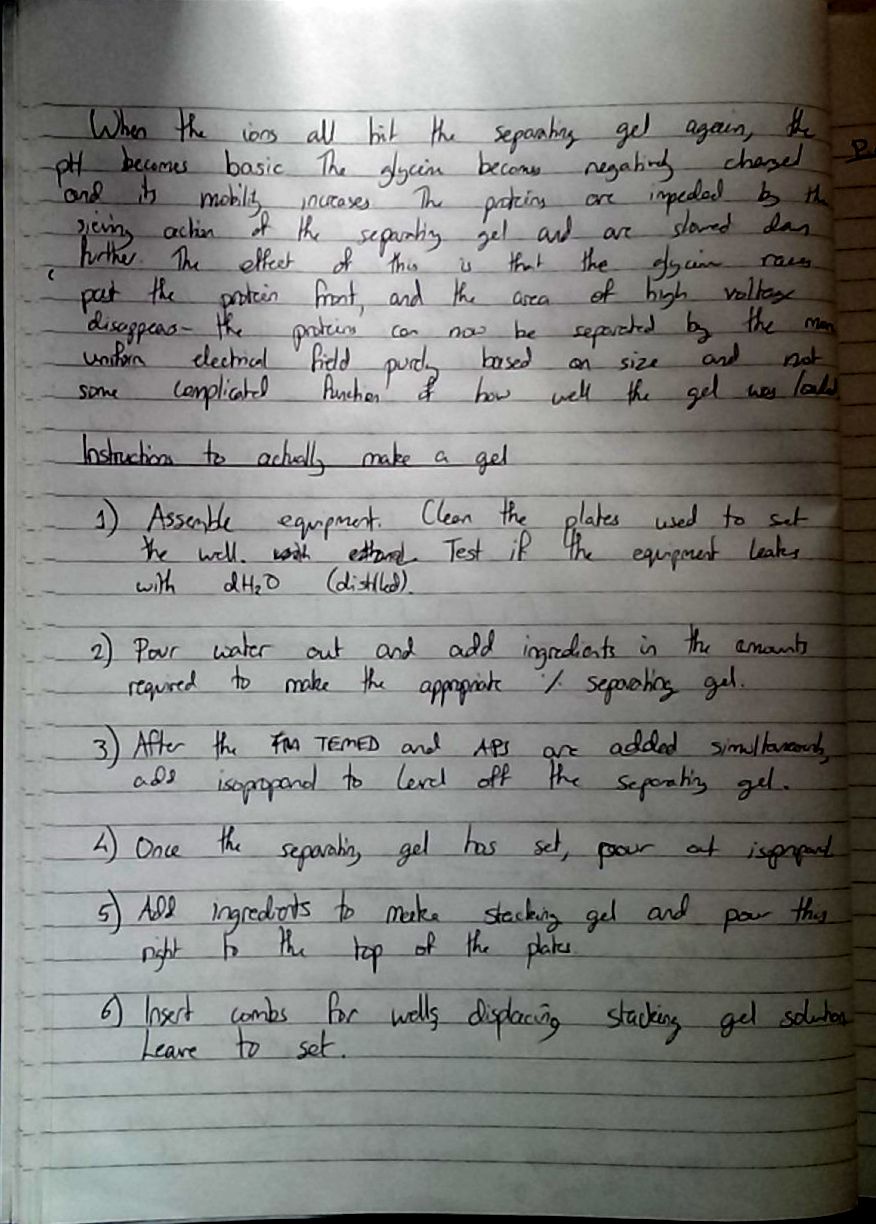 When the ions all hit the separating gel again, the
pH becomes basic The glycine becomes negatively charged
and its mobility increases The proteins are impeded by the
sieving action of the separating gel and are slowed down
further. The effect of this is that the glycine races
past the protein front, and the area of high voltage
disappears - the proteins can now be separated by the more
uniform electrical field purely based on size and not
some complicated function of how well the gel was loaded
Instructions to actually make a gel
1) Assemble equipment. Clean the plates used to set
the well. with ethanol. Test if the equipment leaks
with dH2O (distilled).
2) Pour water out and add ingredients in the amounts
required to make the appropriate % separating gel.
3) After the TEMED and APS are added simultaneously,
add isopropanol to level off the separating gel.
4) Once the separating gel has set, pour out isopropanol
5) Add ingredients to make stacking gel and pour this
right to the top of the plates
6) Insert combs for wells, displacing stacking gel solution
Leave to set.